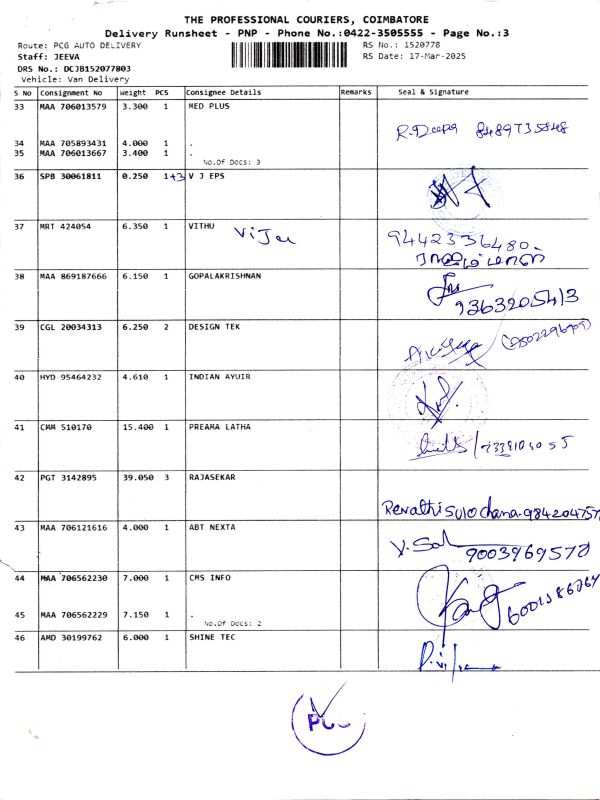 THE PROFESSIONAL COURIERS, COIMBATORE
Delivery Runsheet - PNP - Phone No.:0422-3505555 - Page No.:3
Route: PCG AUTO DELIVERY RS No.: 1520778
Staff: JEEVA RS Date: 17-Mar-2025
DRS No.: DCJB152077803
Vehicle: Van Delivery
S No Consignment No Weight PCS Consignee Details Remarks Seal & Signature
33 MAA 706013579 3.300 1 MED PLUS
R.Deepa 8489735848
34 MAA 705893431 4.000 1 .
35 MAA 706013667 3.400 1 .
No.Of Docs: 3
36 SPB 30061811 0.250 1+3 V J EPS
37 MRT 424054 6.350 1 VITHU
9442336480
38 MAA 869187666 6.150 1 GOPALAKRISHNAN
9363205413
39 CGL 20034313 6.250 2 DESIGN TEK
40 HYD 95464232 4.610 1 INDIAN AYUIR
41 CMM 510170 15.400 1 PREAMA LATHA
42 PGT 3142895 39.050 3 RAJASEKAR
Revathi Sulo chana-984204757
43 MAA 706121616 4.000 1 ABT NEXTA
9003969578
44 MAA 706562230 7.000 1 CMS INFO
45 MAA 706562229 7.150 1 .
No.Of Docs: 2
46 AMD 30199762 6.000 1 SHINE TEC